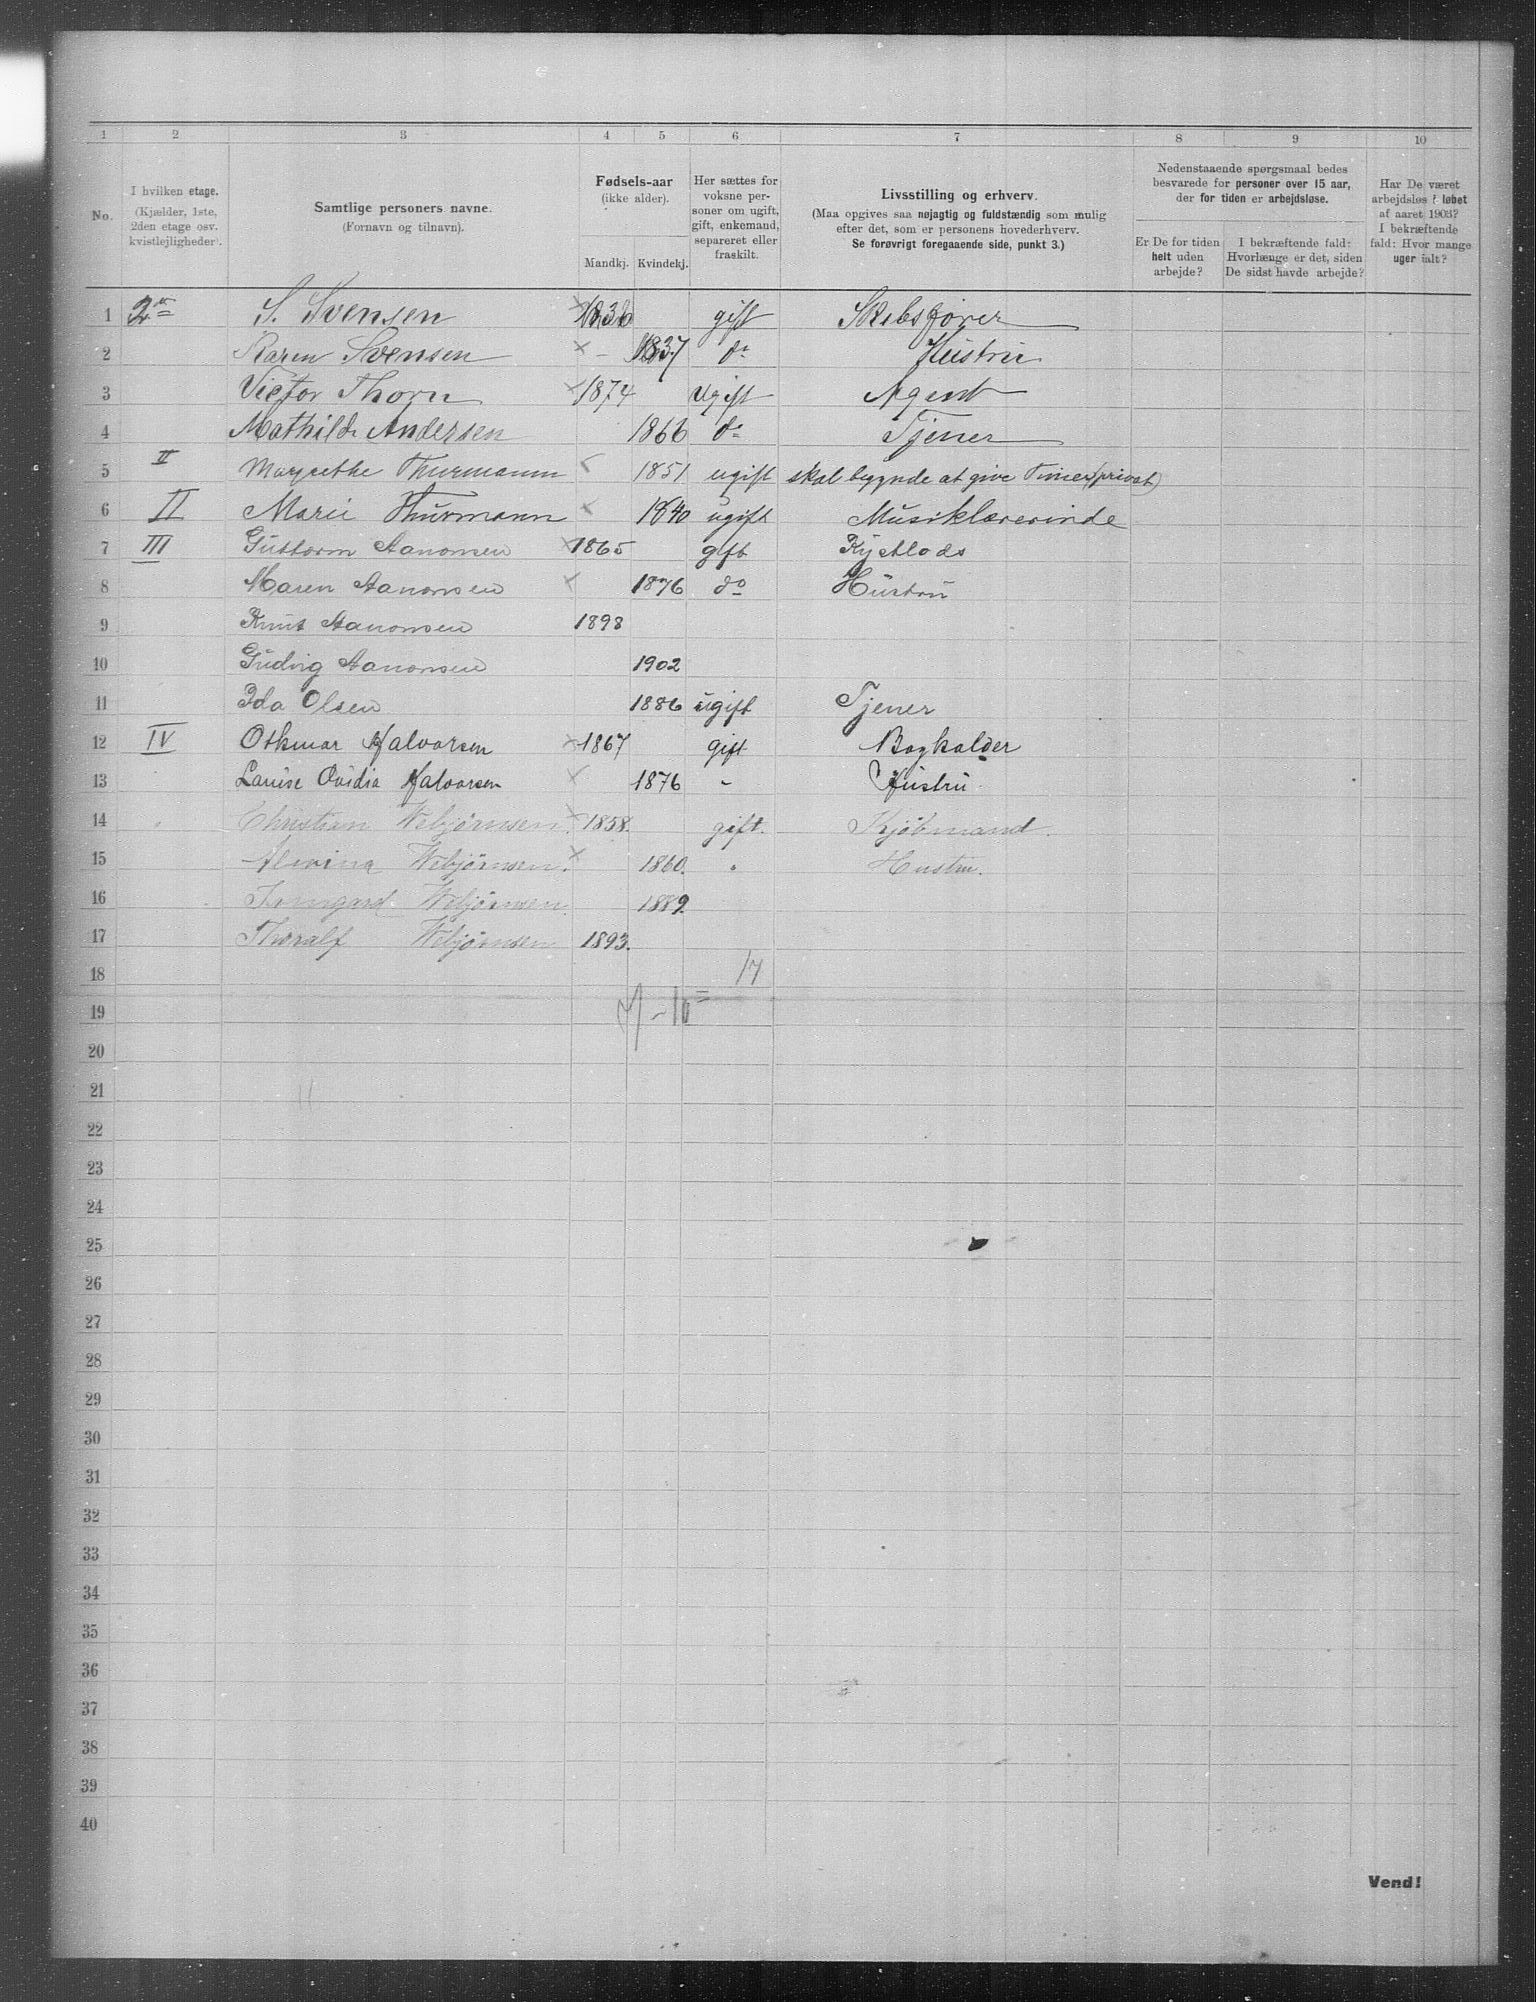 1 2 3 4 5 6 7 8 9 10
No.
I hvilken etage. (Kjælder, 1ste, 2den etage osv. kvistlejligheder).
Samtlige personers navne. (Fornavn og tilnavn).
Fødsels-aar (ikke alder). Mandkj. Kvindekj.
Her sættes for voksne personer om ugift, gift, enkemand, separeret eller fraskilt.
Livsstilling og erhverv. (Maa opgives saa nøjagtig og fuldstændig som mulig efter det, som er personens hovederhverv. Se forøvrigt foregaaende side, punkt 3.)
Nedenstaaende spørgsmaal bedes besvarede for personer over 15 aar, der for tiden er arbejdsløse.
Er De for tiden helt uden arbejde?
I bekræftende fald: Hvorlænge er det, siden De sidst havde arbejde?
Har De været arbejdsløs i løbet af aaret 1903? I bekræftende fald: Hvor mange uger ialt?
1 2 S. Svensen 1836 gift Skibsfører
2 Karen Svensen – 1837 do Hustru
3 Victor Thorn 1874 Ugift Agent
4 Mathilde Andersen 1866 do Tjener
5 II Margrethe Thurmann 1851 ugift skal begynde at give Timer (privat)
6 II Marie Thurmann 1840 ugift Musiklærerinde
7 III Guttorm Aanonsen 1865 gift Kystlods
8 Maren Aanonsen 1876 do Hustru
9 Knut Aanonsen 1898
10 Aanonsen 1902
11 Ida Olsen 1886 ugift Tjener
12 IV Othmar Halvorsen 1867 gift Bogholder
13 Louise Ovidia Halvorsen 1876 " Hustru
14 Christian Vebjørnsen 1858. gift. Kjøbmand.
15 Alvina Vebjørnsen. 1860. " Hustru.
16 Irmgard Vebjørnsen. 1889.
17 Thoralf Vebjørnsen 1893.
18 17
19 7 – 10 =
20
21
22
23
24
25
26
27
28
29
30
31
32
33
34
35
36
37
38
39
40
Vend!